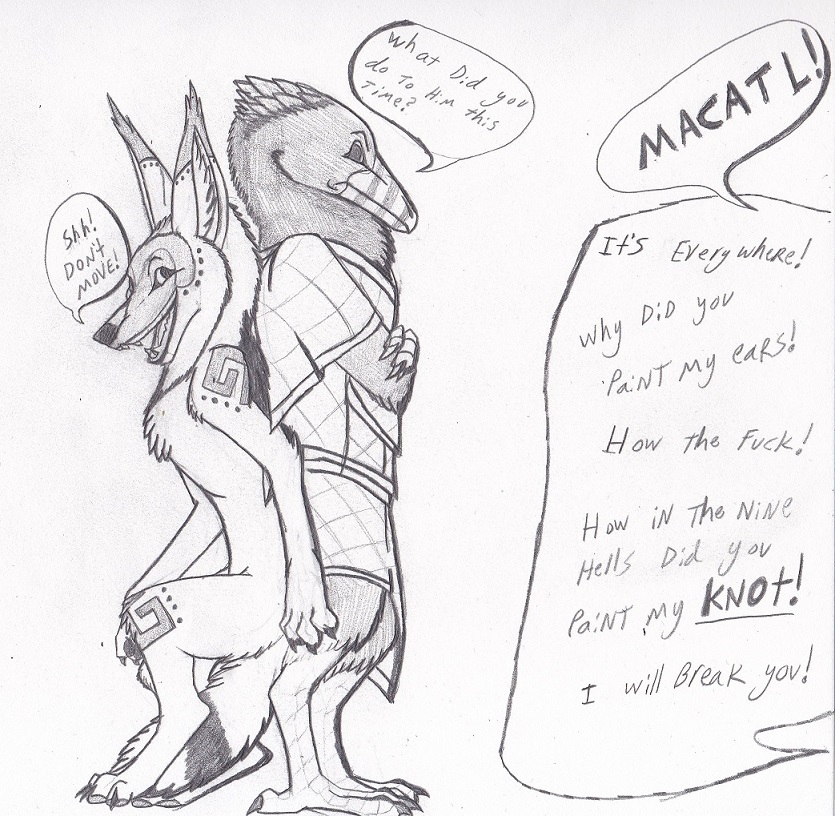 What Did you
do To Him this
Time?
Shh!
DON't
MOVE!
MACATL!
It's Everywhere!
Why DiD you
PaiNT My eaRS!
How the Fuck!
How iN The NiNe
Hells Did you
PaiNT My KNOt!
I will Break you!